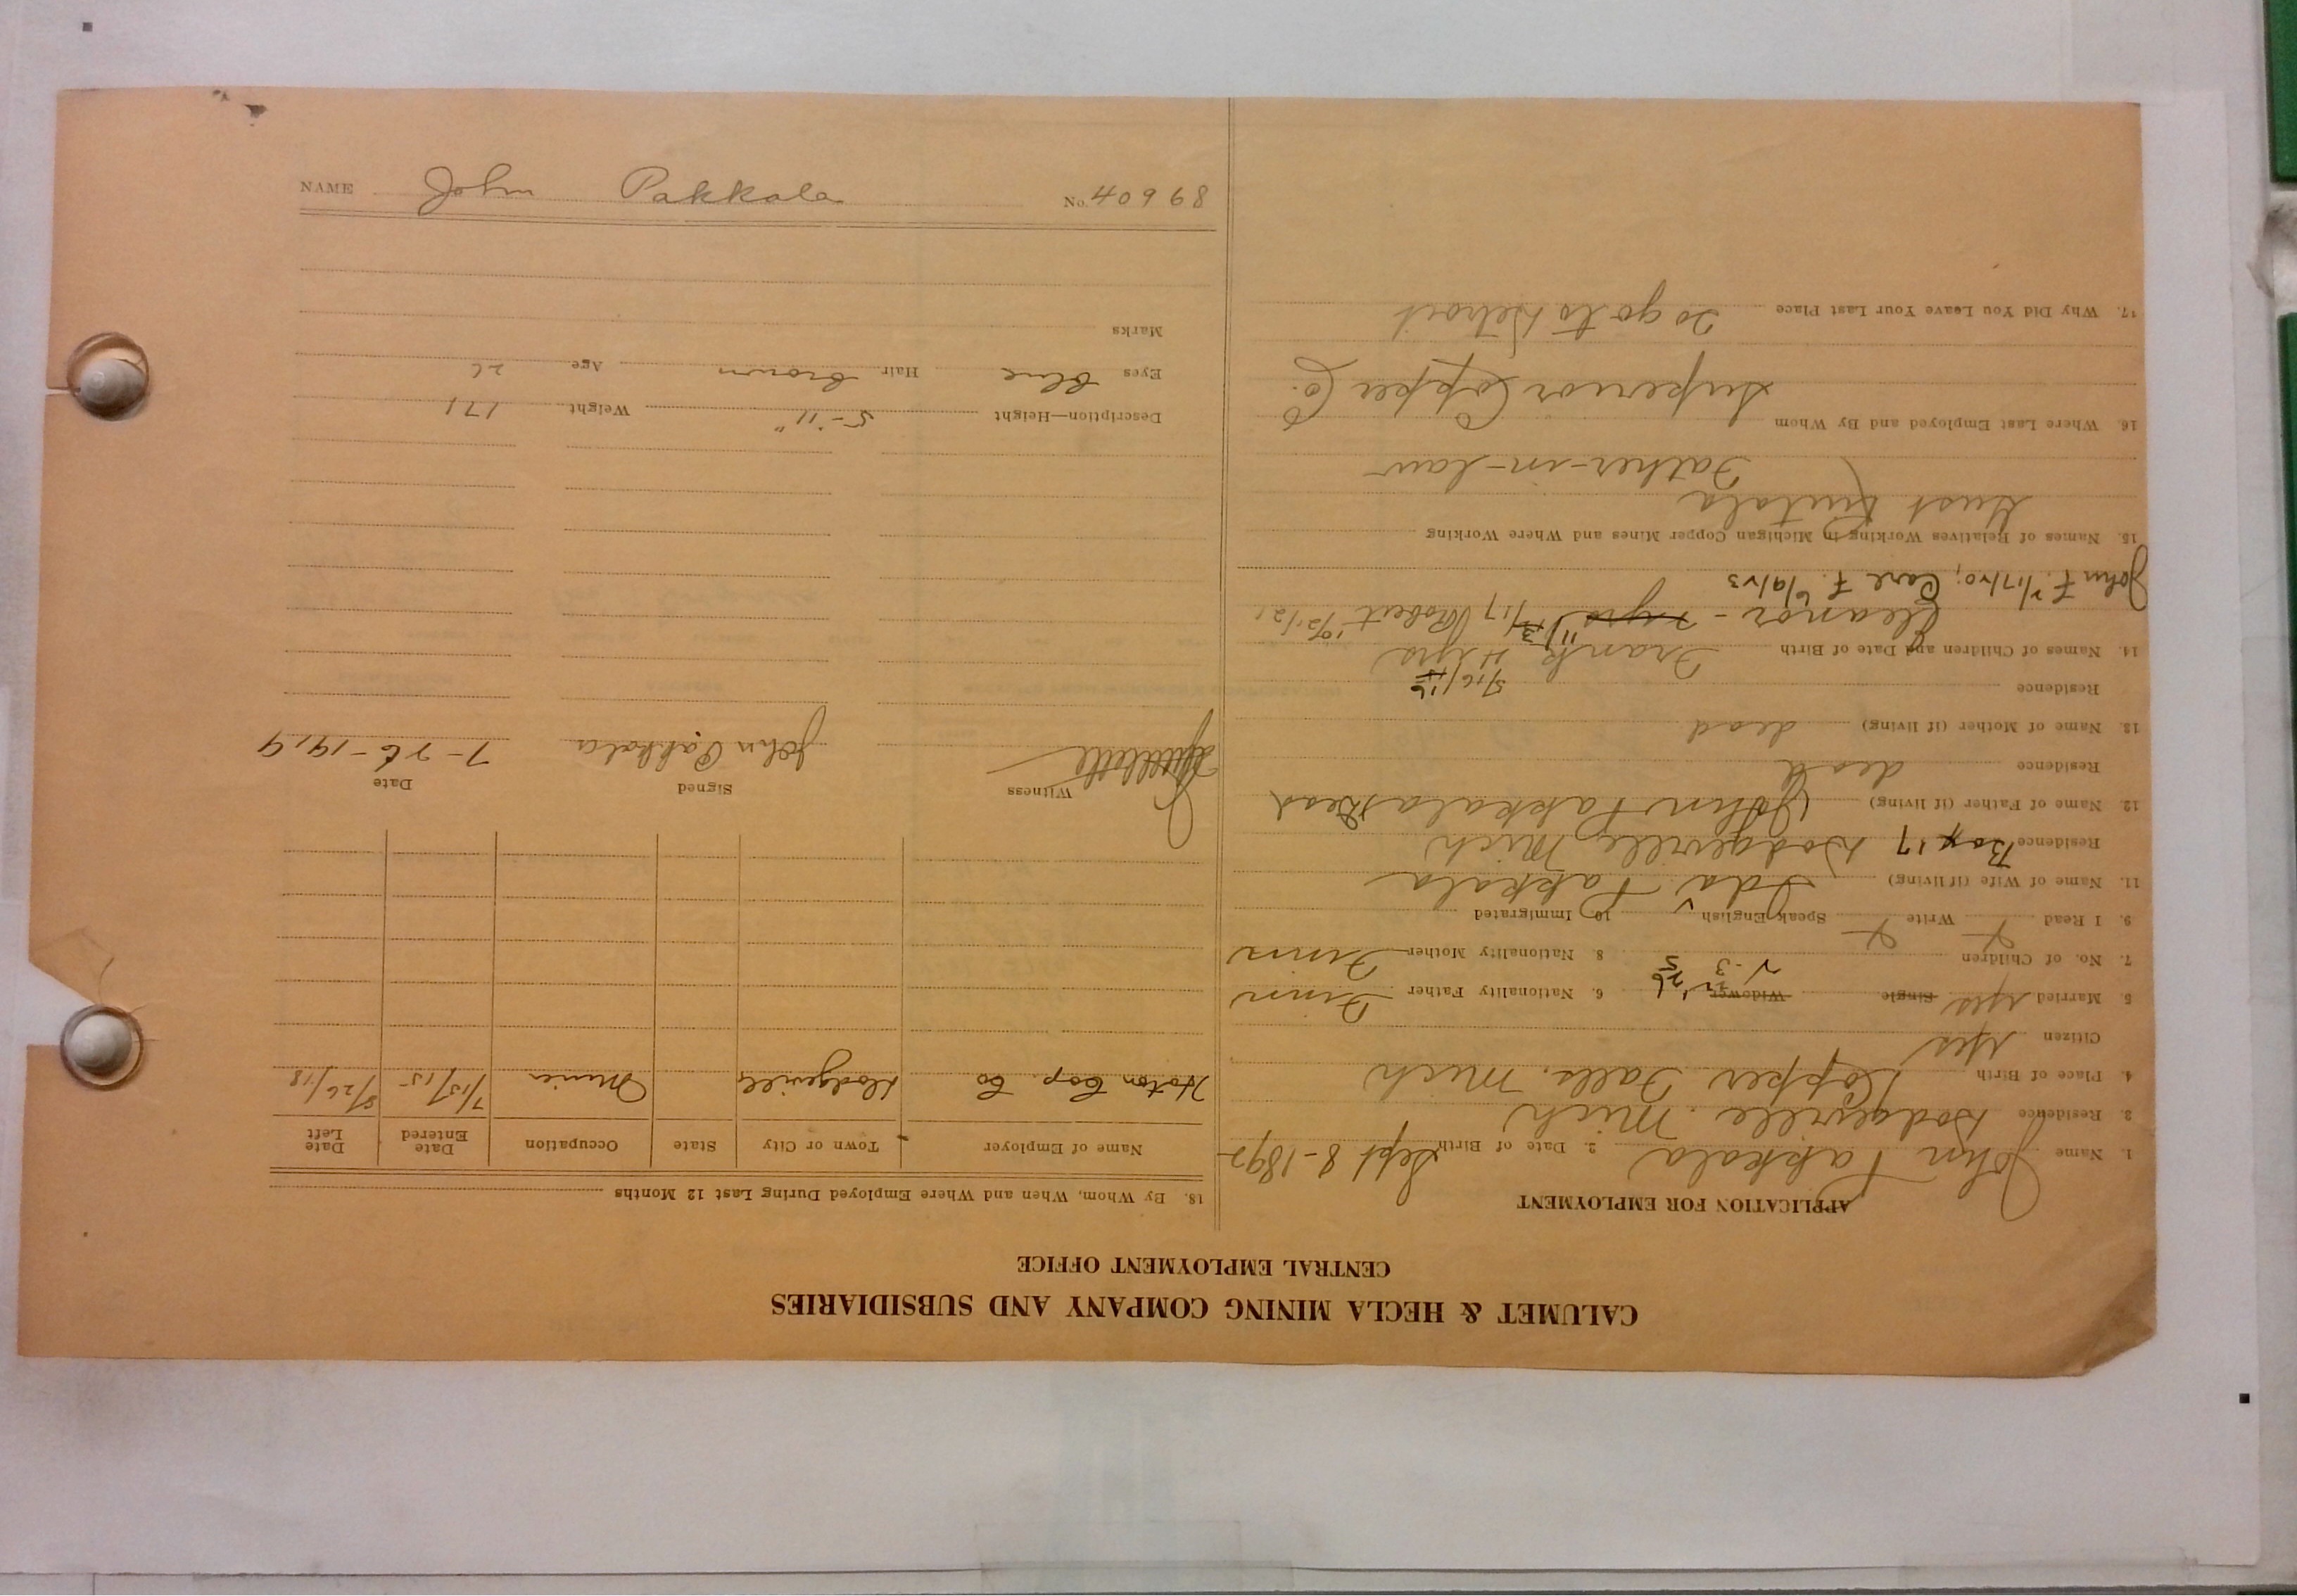 CALUMET & HECLA MINING COMPANY AND SUBSIDIARIES
CENTRAL EMPLOYMENT OFFICE
APPLICATION FOR EMPLOYMENT
1. Name John Pakkala 2. Date of Birth Sept 8-1892
3. Residence Dodgeville Mich
4. Place of Birth Copper Falls. Mich
Citizen Yes
5. Married Yes Single Widower 6. Nationality Father Finn
7. No. of Children 8. Nationality Mother Finn
9. I Read Write Speak English 10. Immigrated
11. Name of Wife (if living) Ida Pakkala
Residence Box 17 Dodgeville Mich
12. Name of Father (if living) John Pakkala Dead
Residence dead
13. Name of Mother (if living) dead
Residence
14. Names of Children and Date of Birth Frank
Eleanor - Robert 10/21/21
John F. 2/17/20; Carl F. 6/9/23
15. Names of Relatives Working in Michigan Copper Mines and Where Working
Gust
Father-in-law
16. Where Last Employed and By Whom
Superior Copper Co.
17. Why Did You Leave Your Last Place To go to Detroit
18. By Whom, When and Where Employed During Last 12 Months
Name of Employer Town or City State Occupation Date Entered Date Left
Hoton Cop. Co Dodgeville Miner 7/15/15 5/26/18
Witness Signed Date
John Pakkala 7-26-1919
Description—Height 5-11" Weight 171
Eyes blue Hair brown Age 26
Marks
NAME John Pakkala No. 40968